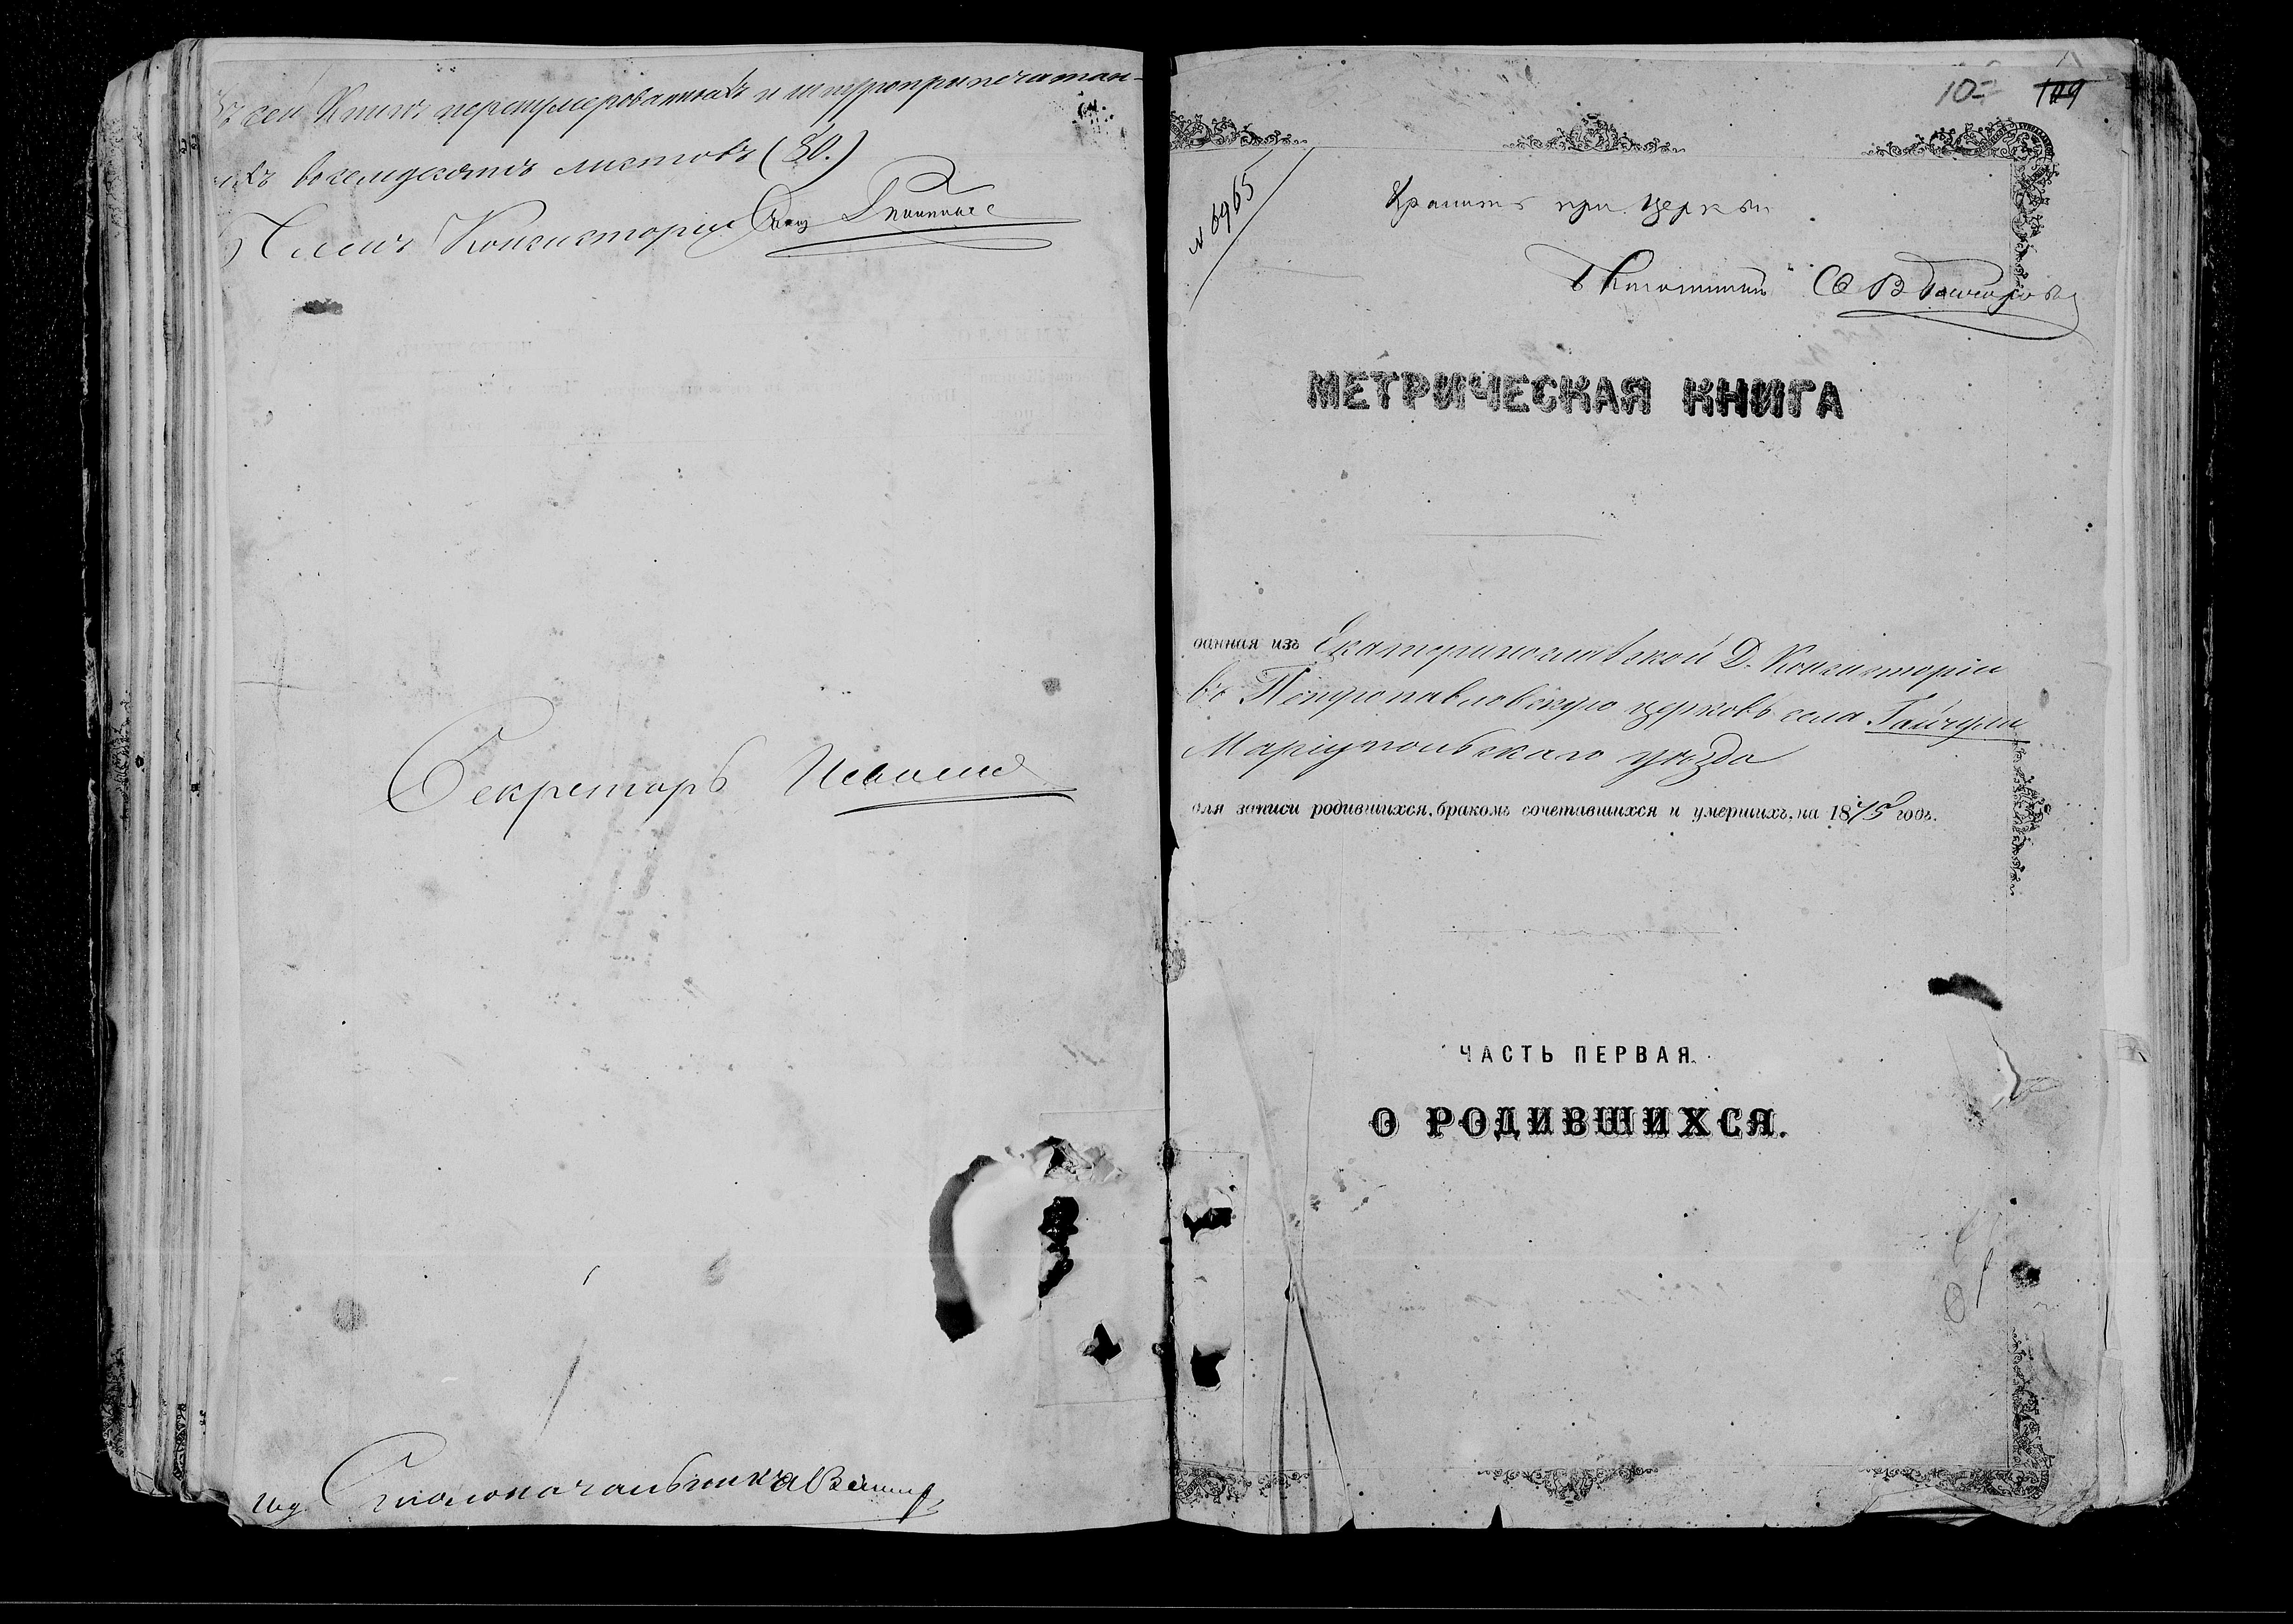 сей Книгѣ перенумерованныхъ и шнуроприпечатан-
ихъ восемдесятъ листовъ (80.)
Членъ Консисторіи
Секретарь
Столоначальникъ
109
№ 6965
Хранить при церкви
МЕТРИЧЕСКАЯ КНИГА
данная изъ Екатеринославской Д. Консисторіи
въ Петропавловскую церковь села Гайчулъ
Маріупольскаго уѣзда
для записи родившихся, бракомъ сочетавшихся и умершихъ, на 1875 годъ.
ЧАСТЬ ПЕРВАЯ.
О РОДИВШИХСЯ.